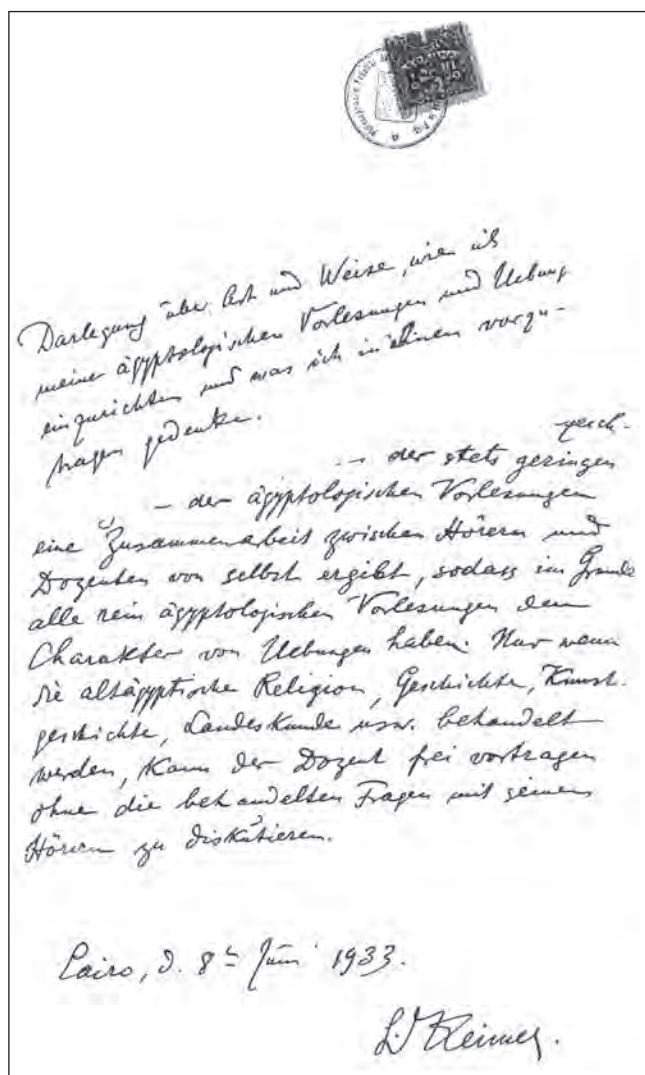 Darlegung über Art und Weise, wie ich
meine ägyptologischen Vorlesungen und Uebung
einzurichten und was ich in ihnen vorzu-
tragen gedenke.
der stets geringen
– der ägyptologischen Vorlesungen
eine Zusammenarbeit zwischen Hörern und
Dozenten von selbst ergibt, sodass im Grunde
alle rein ägyptologischen Vorlesungen den
Charakter von Uebungen haben. Nur wenn
die altägyptische Religion, Geschichte, Kunst-
geschichte, Landeskunde usw. behandelt
werden, kann der Dozent frei vortragen
ohne die behandelten Fragen mit seinen
Hörern zu diskutieren.
Cairo, d. 8ᵗ Juni 1933.
L. Keimer.